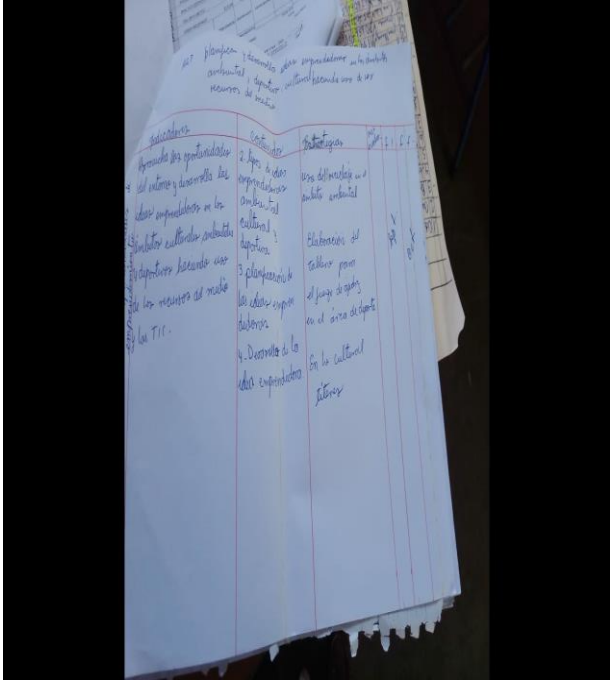 planifica y desarrolla ideas emprendedoras en los
ambiental, deportivo, cultural haciendo uso de los
recursos del medio
Indicadores
Aprovecha las oportunidades
del entorno y desarrolla las
ideas emprendedoras en los
ámbitos culturales ambientales
y deportivos haciendo uso
de los recursos del medio
las TIC.
Contenido
2 tipos de ideas
emprendedoras
ambiental
cultural y
deportiva
3 planificación de
las ideas empren
dedoras
4. Desarrollo de la
idea emprendedora
Estrategias
uso del reciclaje
ámbito ambiental
Elaboración del
tablero para
el juego de ajedrez
en el área de deporte
En lo cultural
títeres